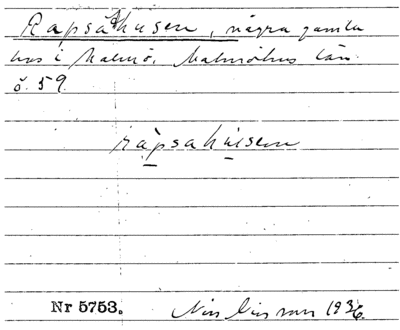 Rapsahusen, några gamla
hus i Malmö. Malmöhus län
ö. 59.
ràpsahùsenn
Nr 5753. 1936.